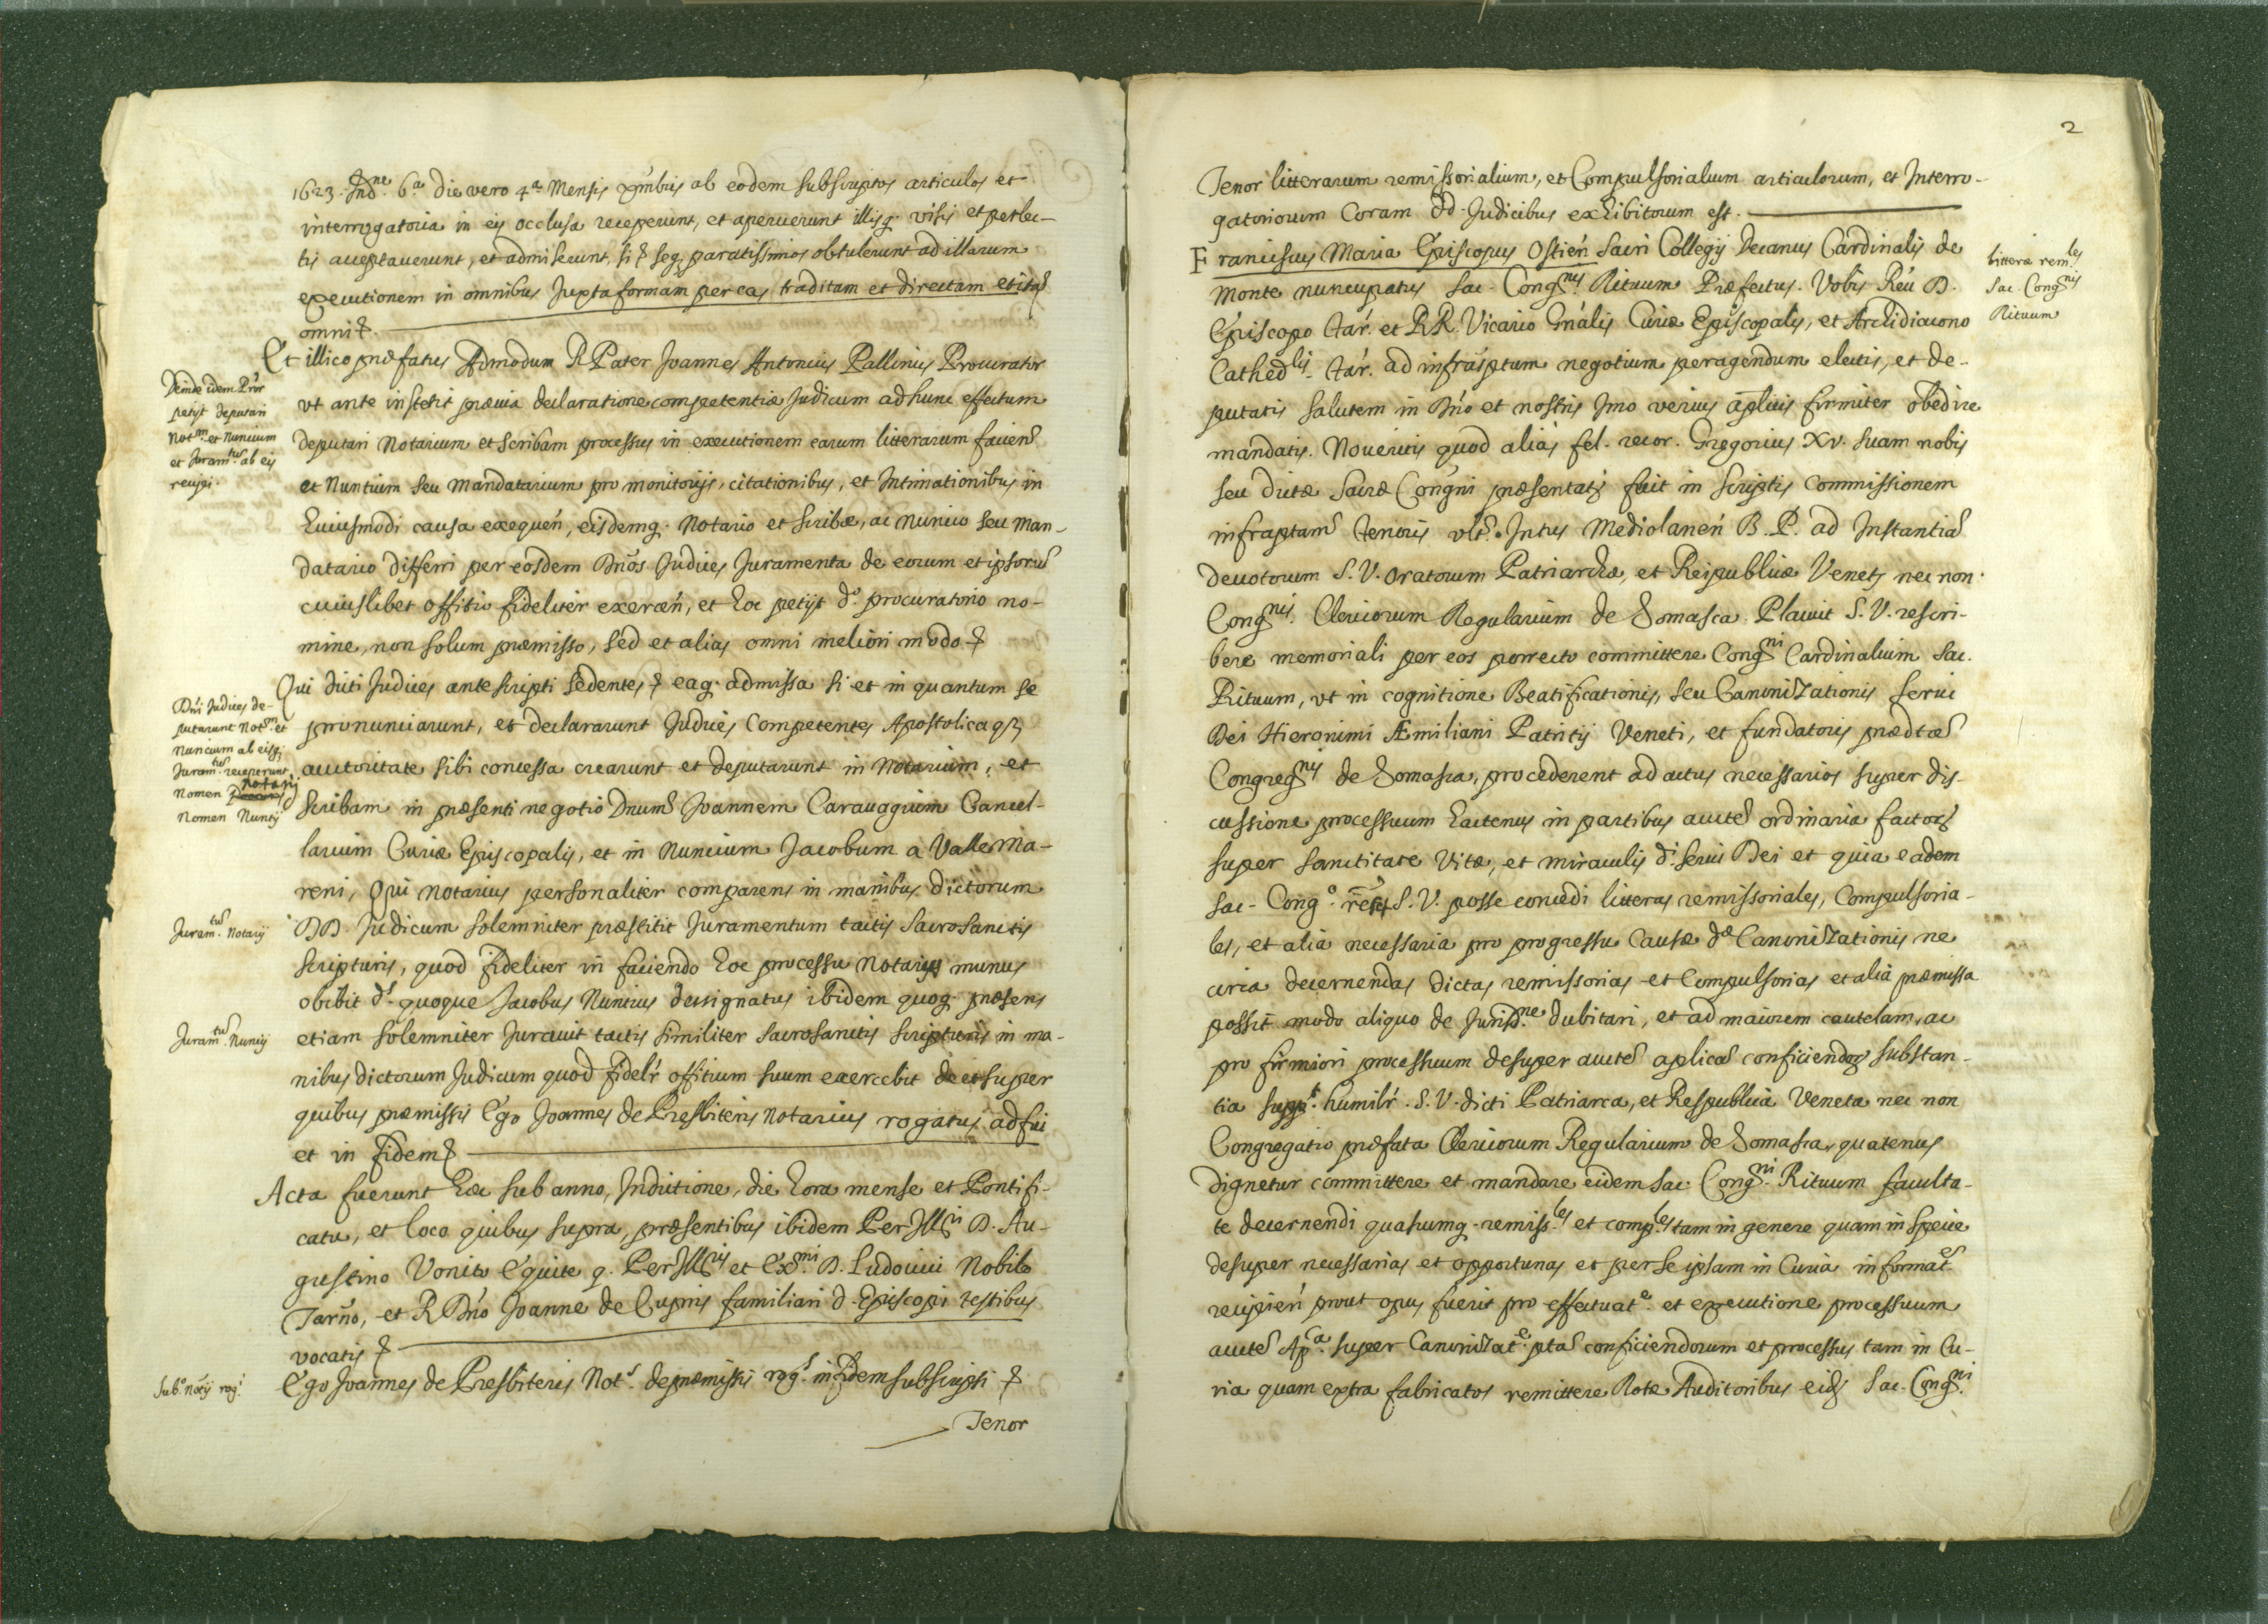 1623. Ind.ne 6.a die vero 4.a Mensis Xmbris ab eodem subscriptos articulos et
interrogatoria in eis occlusa receperunt, et aperuerunt illisq. visis et perlec-
tis acceptaverunt, et admiserunt, si et seq. paratissimos obtulerunt ad illarum
executionem in omnibus Juxta formam per eas traditam et directam et
omni
Et illico præfatus Admodum R Pater Joannes Antonius Pallinius Procurator
Deinde idem Pror
petijt deputari
Not.m et Nuncium
et Juram.tum ab eis
recipi.
vt ante institit prævia declaratione competentiæ Judicum ad hunc effectum
deputari Notarium et scribam processus in executionem earum litterarum facien
et Nuntium seu Mandatarium pro monitorijs, citationibus, et Intimationibus in
huiusmodi causa exequen, eisdemq. Notario et scribæ, ac Nuncio seu Man-
datario differri per eosdem Dnos Judices Juramenta de eorum et ipsorum
cuiuslibet offitio fideliter exercen, et hoc petijt d.o procuratorio no-
mine, non solum præmisso, sed et alias omni meliori modo
Qui dicti Judices ante scripti sedentes eaq. admissa si et in quantum se
Dni Judices de-
putarunt Not.m et
Nuncium ab eisq;
Juram.tum receperunt
Nomen Notarij
Nomen Nuntij
pronunciarunt, et declararunt Judices Competentes Apostolicaq;
auctoritate sibi concessa crearunt et deputarunt in Notarium, et
scribam in præsenti negotio Dnum Joannem Caravagium Cancel-
larium Curiæ Episcopalis, et in Nuncium Jacobum a Valle Ma-
reni, Qui Notarius personaliter comparens in manibus dictorum
Juram.tum Notarij
DD. Judicum solemniter præstitit Juramentum tactis sacrosanctis
scripturis, quod fideliter in faciendo hoc processu Notarij munus
obibit d.s quoque Jacobus Nuntius designatus ibidem quoq. præsens
Juram.tum Nuncij
etiam solemniter Juravit tactis similiter sacrosanctis scripturis in ma-
nibus dictorum Judicum quod fidelr offitium suum exercebit de et super
quibus præmissis Ego Joannes de Presbiteris Notarius rogatus adfui
et in fidem
Acta fuerunt hæc sub anno, Indictione, die hora mense et Pontifi-
catu, et loco quibus supra, præsentibus ibidem Per Ill.ri D. Au-
gustino Vonito Equite q. Per Ill.ris et Ex.mi D. Ludovici Nobile
Tarno, et R Dno Joanne de Cupris familiari d. Episcopi testibus
vocatis
Sub.o notij rog.i
Ego Joannes de Presbiteris Not.s de præmissis rog.s in fidem subscripsi
Tenor
2
Tenor litterarum remissorialium, et Compulsorialium articulorum, et Interro-
gatoriorum Coram dd. Judicibus exhibitorum est.
Franciscus Maria Episcopus Ostien Sacri Collegij Decanus Cardinalis de
litteræ rem.les
Sac. Cong.nis
Rituum
Monte nuncupatus Sac. Cong.nis Rituum Præfectus. Vobis Reu D.
Episcopo Tar. et RR. Vicario Gnalis Curiæ Episcopalis, et Archidiacono
Cathed.lis Tar. ad infrasptum negotium peragendum electis, et de-
putatis salutem in Dno et nostris Imo verius aplicis firmiter obedire
mandatis. Noveritis quod alias fel. recor. Gregorius XV. suam nobis
seu dictæ Sacræ Congni præsentat fuit in scriptis commissionem
infraptam tenoris vlt. Intus Mediolanen B. P. ad Instantia
devotorum S. V. oratorum Patriarchæ, et Reipublicæ Venet nec non
Cong.nis Clericorum Regularium de Somasca. Placuit S. V. rescri-
bere memoriali per eos porrecto committere Cong.ni Cardinalium Sac.
Rituum, vt in cognitione Beatificationis, seu Canonizationis servi
Dei Hieronimi Æmiliani Patritij Veneti, et fundatoris prædtæ
Congreg.nis de Somasca, procederent ad actus necessarios super dis-
cussione processuum hactenus in partibus aucte ordinaria factor
super sanctitate Vitæ, et miraculis d.i servi Dei et quia eadem
Sac. Cong.o S. V. posse concedi litteras remissoriales, Compulsoria-
les, et alia necessaria pro progressu Causæ dæ Canonizationis ne
circa decernendas dictas remissorias et Compulsorias et alia præmissa
possit modo aliquo de Jurisd.ne dubitari, et ad maiorem cautelam, ac
pro firmiori processuum desuper aucte aplica conficiendor substan-
tia supp.t humilr. S. V. dicti Patriarca, et Respublica Veneta nec non
Congregatio præfata Clericorum Regularium de Somasca, quatenus
dignetur committere et mandare eidem Sac. Cong.ni Rituum faculta-
te decernendi quascumq. remiss.les et comp.les tam in genere quam in specie
desuper necessarias et opportunas et per se ipsam in Curia informat.es
recipien prout opus fuerit pro effectuat.e et executione processuum
aucte Ap.ca super Canonizat.e pta conficiendorum et processus tam in Cu-
ria quam extra fabricatos remittere Rotæ Auditoribus eid Sac. Cong.ni